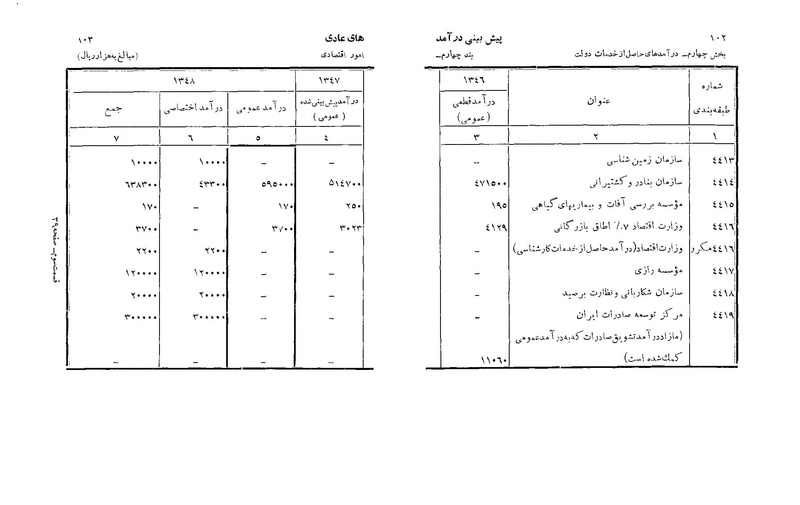 ۱۰۲ پیش بینی درآمد
بخش چهارم – درآمدهای حاصل از خدمات دولت بند چهارم –
شماره طبقه‌بندی عنوان ۱۳٤٦ درآمد قطعی (عمومی)
۱ ۲ ۳
٤٤۱۳ سازمان زمین شناسی –
٤٤۱٤ سازمان بنادر و کشتیرانی ٤۷۱۵۰۰
٤٤۱۵ مؤسسه بررسی آفات و بیماریهای گیاهی ۱۹۵
٤٤۱٦ وزارت اقتصاد ۷٪ اطاق بازرگانی ٤۱۲۹
٤٤۱٦ مکرر وزارت اقتصاد (درآمد حاصل از خدمات کارشناسی) –
٤٤۱۷ مؤسسه رازی –
٤٤۱۸ سازمان شکاربانی و نظارت برصید –
٤٤۱۹ مرکز توسعه صادرات ایران –
(مازاد درآمد تشویق صادرات که به درآمد عمومی
کمک شده است) ۱۱۰٦۰
های عادی ۱۰۳
امور اقتصادی (مبالغ به هزار ریال)
۱۳٤۷ ۱۳٤۸
درآمد پیش بینی شده (عمومی) درآمد عمومی درآمد اختصاصی جمع
٤ ۵ ٦ ۷
– – ۱۰۰۰۰ ۱۰۰۰۰
۵۱٤۷۰۰ ۵۹۵۰۰۰ ٤۳۳۰۰ ٦۳۸۳۰۰
۲۵۰ ۱۷۰ – ۱۷۰
۳۰۲۳ ۳۷۰۰ – ۳۷۰۰
– – ۲۲۰۰ ۲۲۰۰
– – ۱۲۰۰۰۰ ۱۲۰۰۰۰
– – ۲۰۰۰۰ ۲۰۰۰۰
– – ۳۰۰۰۰۰ ۳۰۰۰۰۰
– – – –
قسمت سوم – صفحه ۳۹